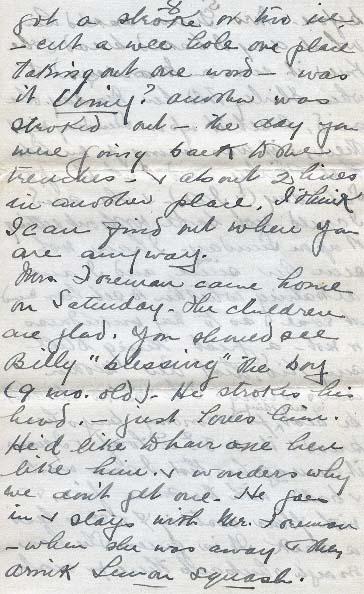 8
got a stroke or two in
- cut a wee hole one place
taking out one word - was
it Vimy? another was
stroked out - the day you
were going back to the
trenches - & about 2 lines
in another place. I think
I can find out where you
are anyway.
Mrs. Foreman came home
on Saturday. The children
are glad. You should see
Billy "blessing" the boy
(9 mo. old). He strokes his
head. - just loves him.
He'd like to have one here
like him & wonders why
we don't get one. He goes
in & stays with Mr. Foreman
- when she was away & they
drink Lemon Squash.